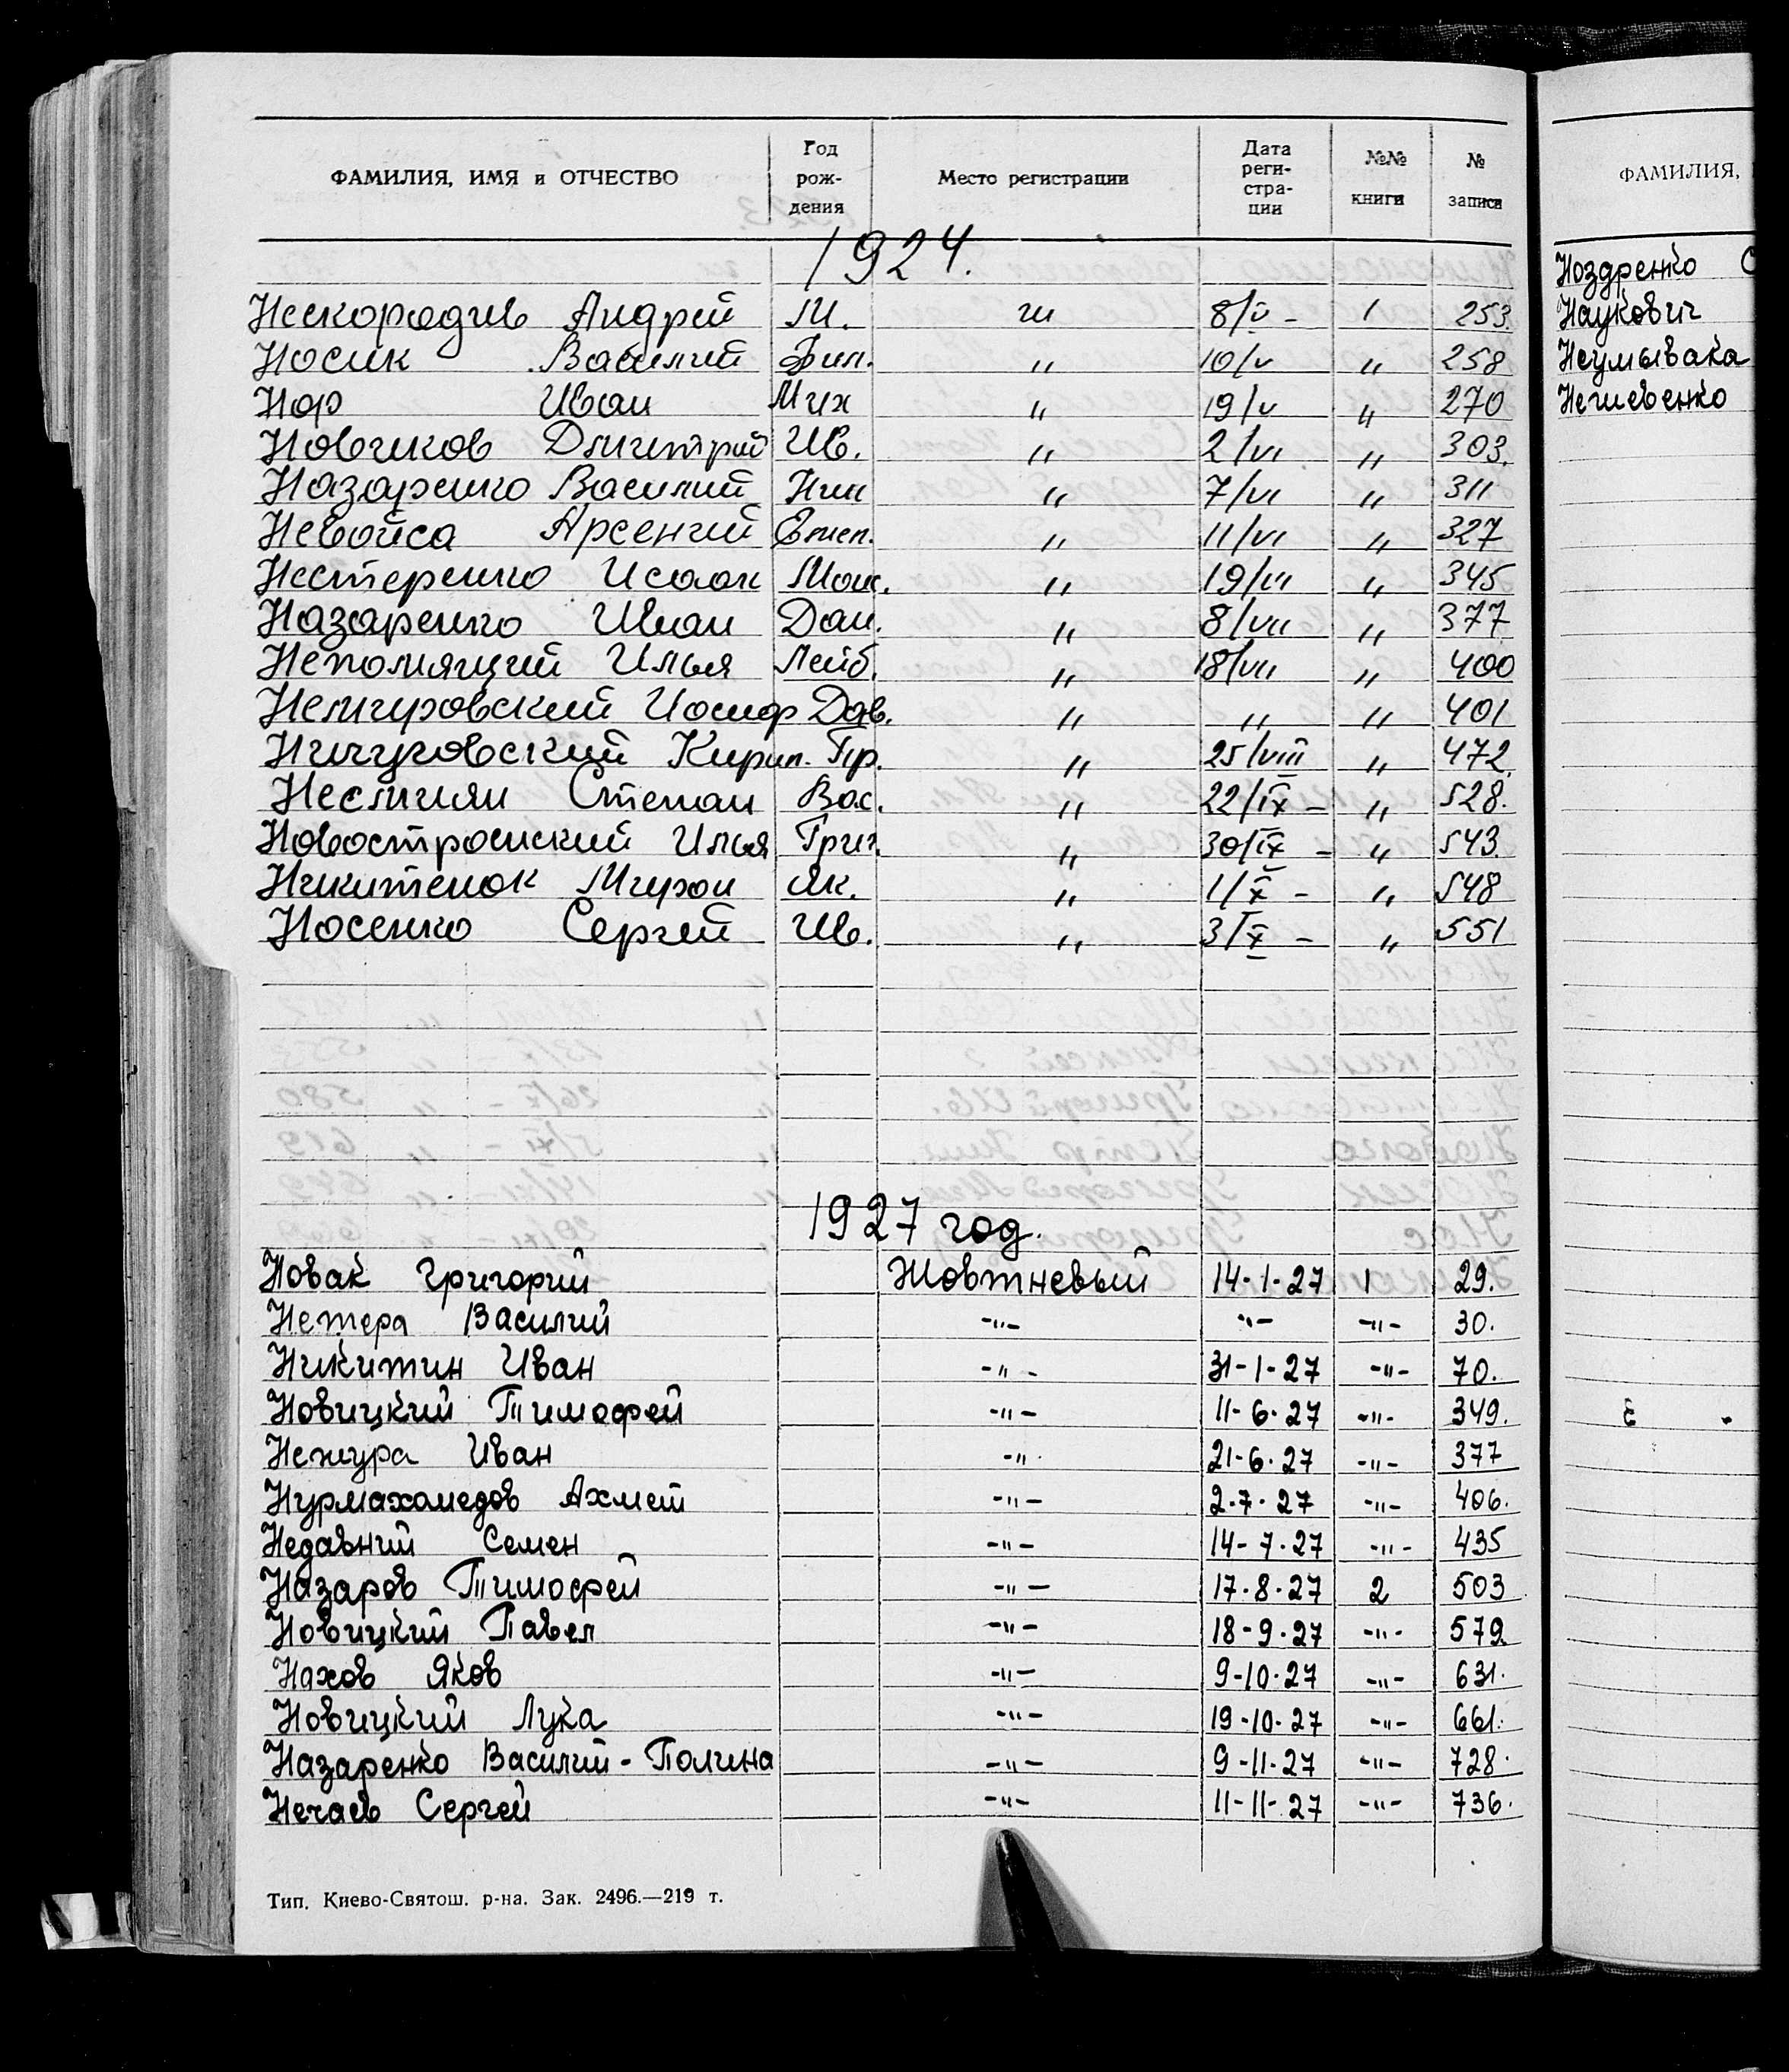 ФАМИЛИЯ, ИМЯ и ОТЧЕСТВО Год рож- дения Место регистрации Дата реги- стра- ции №№ книги № записи
1924.
Нескородев Андрей М. 8/V - 1 253.
Носик Василий Фил. " 10/V " 258
Нор Иван Мих " 19/V " 270
Новиков Дмитрий Ив. " 2/VI " 303.
Назаренко Василий Ник " 7/VI " 311
Невойса Арсений " 11/VI " 327
Нестеренко Исаак Моис. " 19/VI " 345
Назаренко Иван Дан. " 8/VII " 377
Непомящий Илья Лейб. " 18/VII " 400
Немировский Иосиф Дав. " " " 401
Ничуговский Кирил. Пр. " 25/VIII " 472.
Несмиян Степан Вас. " 22/IX - " 528.
Новостроиский Илья Григ. " 30/IX - " 543.
Никитенок Мирон Як. " 1/X - " 548
Носенко Сергей Ив. " 3/X - " 551
1927 год.
Новак Григорий Жовтневый 14-1-27 1 29.
Василий -"- "- -"- 30.
Никитин Иван -"- 31-1-27 -"- 70.
Новицкий Тимофей -"- 11-6-27 -"- 349.
Нежура Иван -"- 21-6-27 -"- 377
Нурмахомедов Ахмет -"- 2-7-27 -"- 406.
Недавний Семен -"- 14-7-27 -"- 435
Назаров Тимофей -"- 17-8-27 2 503
Новицкий Павел -"- 18-9-27 -"- 579.
Нахов Яков -"- 9-10-27 -"- 631.
Новицкий Лука -"- 19-10-27 -"- 661.
Назаренко Василий - Полина -"- 9-11-27 -"- 728.
Нечаев Сергей -"- 11-11-27 -"- 736.
Тип. Киево-Святош. р-на. Зак. 2496.—219 т.
ФАМИЛИЯ,
Ноздренко
Наукович
Неумывака